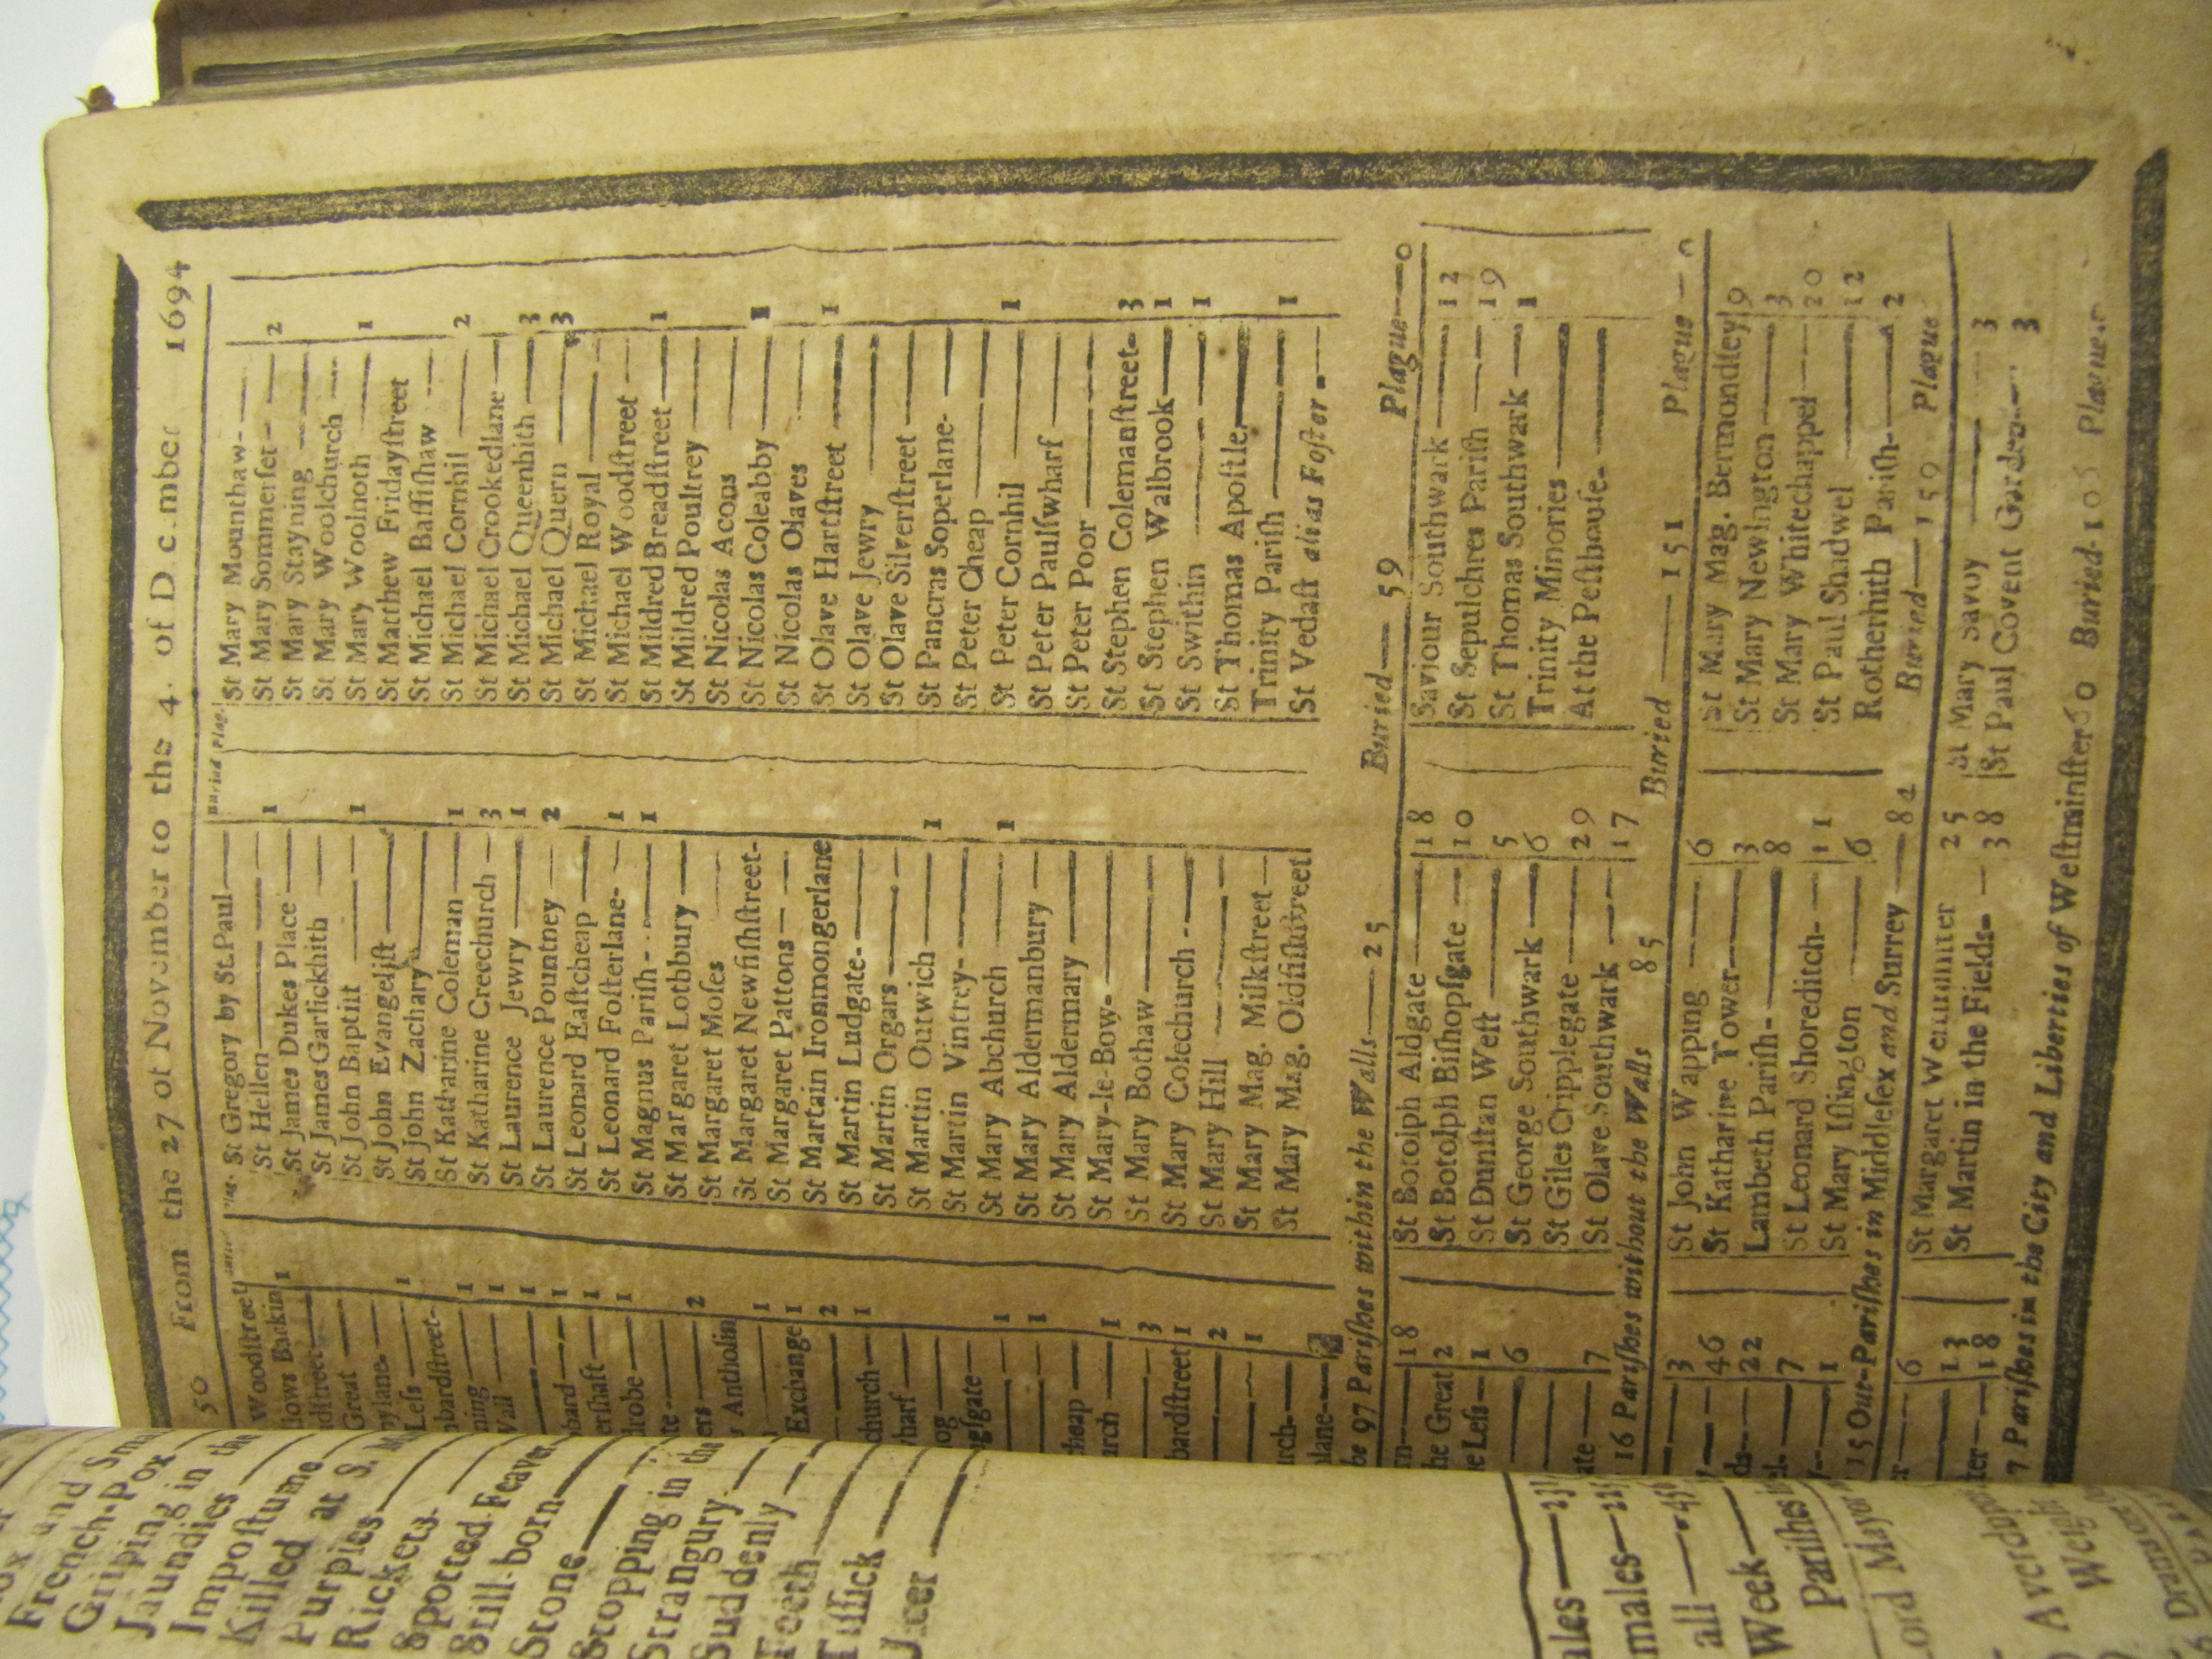 50 From the 27 of November to the 4. of D c.mber 1694
Woodſtreet
llows Barkin 1
Great
Leſs 1
mbardſtreet-
ning 1
Wall 1
1
bard 1
erſhaft 1
drobe 1
te
ers 2
s Antholin
1
Exchange 1
2
church 1
wharf
og
gſgate
1
1
heap
urch 1
3
bardſtreet 1
2
1
rch-
lane
St Gregory by St.Paul
St Hellen 1
St James Dukes Place
St James Garlickhith
St John Baptiſt 1
St John Evangeliſt
St John Zachary
St Katharine Coleman 1
St Katharine Creechurch 3
St Laurence Jewry 1
St Laurence Pountney 2
St Leonard Eaſtcheap
St Leonard Foſterlane- 1
St Magnus Pariſh - 1
St Margaret Lothbury
St Margaret Moſes
St Margaret Newfiſhſtreet-
St Margaret Pattons
St Martain Ironmongerlane
St Martin Ludgate-
St Martin Orgars
St Martin Outwich 1
St Martin Vintrey-
St Mary Abchurch 1
St Mary Aldermanbury
St Mary Aldermary
St Mary-le-Bow-
St Mary Bothaw
St Mary Colechurch
St Mary Hill
St Mary Mag. Milkſtreet
St Mary Mag. Oldfiſhſtreet
Buried Plag.
St Mary Mounthaw-
St Mary Sommerſet - 2
St Mary Stayning
St Mary Woolchurch
St Mary Woolnoth 1
St Matthew Fridayſtreet
St Michael Baſſiſhaw
St Michael Cornhil 2
St Michael Crookedlane
St Michael Queenhith 3
St Michael Quern 3
St Michael Royal
St Michael Woodſtreet
St Mildred Breadſtreet 1
St Mildred Poultrey
St Nicolas Acons
St Nicolas Coleabby 1
St Nicolas Olaves
St Olave Hartſtreet 1
St Olave Jewry
St Olave Silverſtreet
St Pancras Soperlane-
St Peter Cheap
St Peter Cornhil 1
St Peter Paulſwharf
St Peter Poor
St Stephen Colemanſtreet- 3
St Stephen Walbrook 1
St Swithin 1
St Thomas Apoſtle
Trinity Pariſh 1
St Vedaſt alias Foſter
he 97 Pariſhes within the Walls 25 Buried 59 Plague 0
rn 18
he Great 2
e Leſs 1
6
ate 7
St Botolph Aldgate 18
St Botolph Biſhopſgate 10
St Dunſtan Weſt 5
St George Southwark 6
St Giles Cripplegate 29
St Olave Southwark 17
Saviour Southwark 12
St Sepulchres Pariſh 19
St Thomas Southwark 1
Trinity Minories
At the Peſthouſe-
16 Pariſhes without the Walls 85 Buried 151 Plague 0
3
46
ds 22
el- 7
1
St John Wapping 6
St Katharine Tower 3
Lambeth Pariſh- 8
St Leonard Shoreditch- 11
St Mary Iſlington 6
St Mary Mag. Bermondſey 9
St Mary Newington 3
St Mary Whitechappel 20
St Paul Shadwel 12
Rotherhith Pariſh- 2
15 Out-Pariſhes in Middleſex and Surrey 84 Buried 159 Plague
6
13
ter 18
St Margaret Weſtminſter 25
St Martin in the Fields- 38
St Mary Savoy 3
St Paul Covent Garden 3
7 Pariſhes in the City and Liberties of Weſtminſter 60 Buried-106 Plague
French-Pox
Griping in the
Jaundies
Impoſtume
Killed at S. M
Purples
Rickets
Spotted Feaver
Still-born
Stone
Stopping in the
Strangury
Suddenly
Teeth
Tiſſick
Ulcer
ales
males
all
Week
Pariſhes
Lord Mayor
Averdupo
Weigh